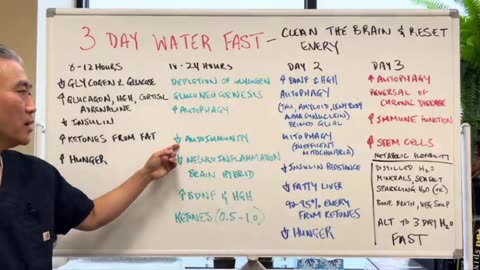 3 DAY WATER FAST – CLEAN THE BRAIN & RESET
EVERY
6-12 HOURS
↓ GLYCOGEN & GLUCOSE
↑ GLUCAGON, HGH, CORTISOL
ADRENALINE
↓ INSULIN
↑ KETONES FROM FAT
↑ HUNGER
18-24 HOURS
DEPLETION OF GLYCOGEN
GLUCONEOGENESIS
↑ AUTOPHAGY
↓ AUTOIMMUNITY
↓ NEUROINFLAMMATION
BRAIN HYBRID
↑ BDNF & HGH
KETONES (0.5-1.0)
DAY 2
↑ BDNF & HGH
AUTOPHAGY
(TAU, AMYLOID, LEWY BODY
PRIMED GLIAL
MITOPHAGY
(INEFFICIENT
MITOCHONDRIA)
↓ INSULIN RESISTANCE
↓ FATTY LIVER
ENERGY
FROM KETONES
↓ HUNGER
DAY 3
↑ AUTOPHAGY
REVERSAL OF
CHRONIC DISEASE
↑ IMMUNE FUNCTION
↑ STEM CELLS
METABOLIC FLEXIBILITY
DISTILLED H2O
MINERALS, SEA SALT
SPARKLING H2O
BONE BROTH, VEG SOUP
ALT TO 3 DAY H2O
FAST